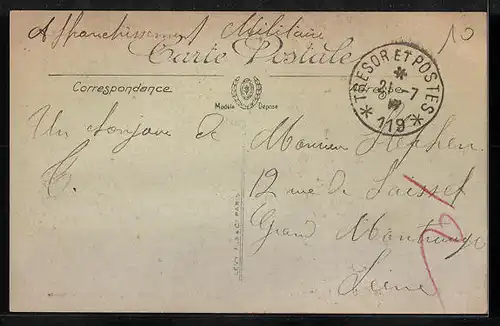 Affranchissement Militaire
10
Carte Postale
TRESOR ET POSTES
21
7
119
Correspondance
Adresse
Modèle Déposé
Un bonjour de
Monsieur
12 rue de
Grand Montrouge
Seine
LEVY FILS & Cie PARIS